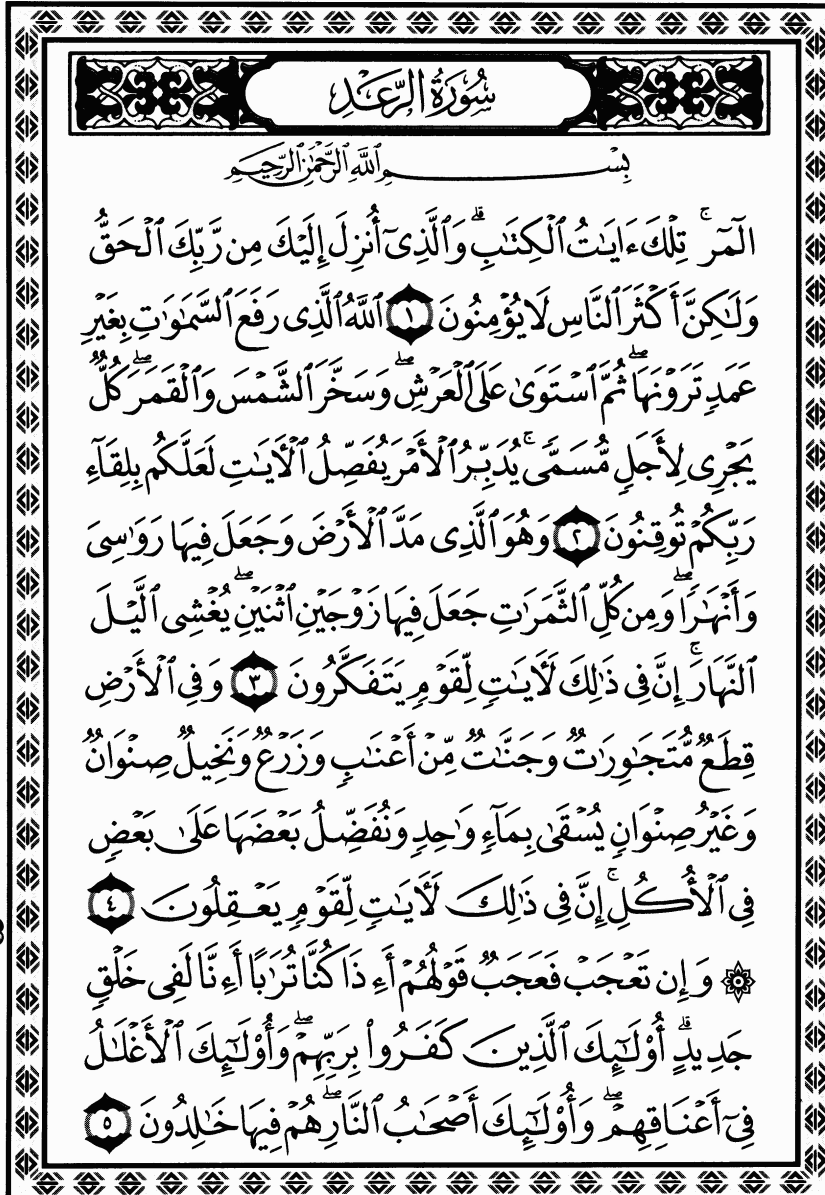 سُورَةُ الرَّعْدِ
بِسْمِ ٱللَّهِ ٱلرَّحْمَٰنِ ٱلرَّحِيمِ
الٓمٓر ۚ تِلْكَ ءَايَٰتُ ٱلْكِتَٰبِ ۗ وَٱلَّذِىٓ أُنزِلَ إِلَيْكَ مِن رَّبِّكَ ٱلْحَقُّ
وَلَٰكِنَّ أَكْثَرَ ٱلنَّاسِ لَا يُؤْمِنُونَ ١ ٱللَّهُ ٱلَّذِى رَفَعَ ٱلسَّمَٰوَٰتِ بِغَيْرِ
عَمَدٍ تَرَوْنَهَا ۖ ثُمَّ ٱسْتَوَىٰ عَلَى ٱلْعَرْشِ ۖ وَسَخَّرَ ٱلشَّمْسَ وَٱلْقَمَرَ ۖ كُلٌّ
يَجْرِى لِأَجَلٍ مُّسَمًّى ۚ يُدَبِّرُ ٱلْأَمْرَ يُفَصِّلُ ٱلْأَيَٰتِ لَعَلَّكُم بِلِقَآءِ
رَبِّكُمْ تُوقِنُونَ ٢ وَهُوَ ٱلَّذِى مَدَّ ٱلْأَرْضَ وَجَعَلَ فِيهَا رَوَٰسِىَ
وَأَنْهَٰرًا ۖ وَمِن كُلِّ ٱلثَّمَرَٰتِ جَعَلَ فِيهَا زَوْجَيْنِ ٱثْنَيْنِ ۖ يُغْشِى ٱلَّيْلَ
ٱلنَّهَارَ ۚ إِنَّ فِى ذَٰلِكَ لَأَيَٰتٍ لِّقَوْمٍ يَتَفَكَّرُونَ ٣ وَفِى ٱلْأَرْضِ
قِطَعٌ مُّتَجَٰوِرَٰتٌ وَجَنَّٰتٌ مِّنْ أَعْنَٰبٍ وَزَرْعٌ وَنَخِيلٌ صِنْوَانٌ
وَغَيْرُ صِنْوَانٍ يُسْقَىٰ بِمَآءٍ وَٰحِدٍ وَنُفَضِّلُ بَعْضَهَا عَلَىٰ بَعْضٍ
فِى ٱلْأُكُلِ ۚ إِنَّ فِى ذَٰلِكَ لَأَيَٰتٍ لِّقَوْمٍ يَعْقِلُونَ ٤
۞ وَإِن تَعْجَبْ فَعَجَبٌ قَوْلُهُمْ أَءِذَا كُنَّا تُرَٰبًا أَءِنَّا لَفِى خَلْقٍ
جَدِيدٍ ۗ أُو۟لَٰٓئِكَ ٱلَّذِينَ كَفَرُوا۟ بِرَبِّهِمْ ۖ وَأُو۟لَٰٓئِكَ ٱلْأَغْلَٰلُ
فِىٓ أَعْنَاقِهِمْ ۖ وَأُو۟لَٰٓئِكَ أَصْحَٰبُ ٱلنَّارِ ۖ هُمْ فِيهَا خَٰلِدُونَ ٥